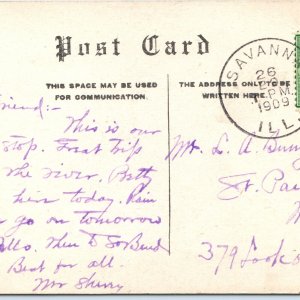 Post Card
THIS SPACE MAY BE USED
FOR COMMUNICATION.
THE ADDRESS ONLY TO BE
WRITTEN HERE.
SAVANN
26
PM
1909
ILL
Friend:-
This is our
Stop. First Trip
The River.
here today.
go on tomorrow
Then To So Bend
Best for all.
Mr Sherry
Mr. L. A.
St. Pau
379